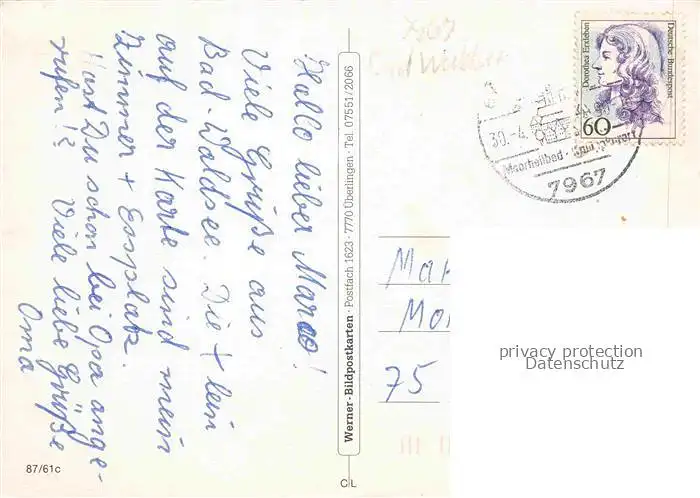 Hallo lieber Marco!
Viele Grüße aus
Bad-Waldsee. Die + lein
auf der Karte sind mein
Zimmer + Essplatz.
Hast Du schon bei Opa ange-
rufen!? Viele liebe Grüße
Oma
87/61c
Werner-Bildpostkarten · Postfach 1623 · 7770 Überlingen · Tel. 07551/2066
C L
7967
30.-4.
Moorheilbad
7967
Dorothea Erxleben
Deutsche Bundespost
60
Mar
Mo
75
privacy protection
Datenschutz